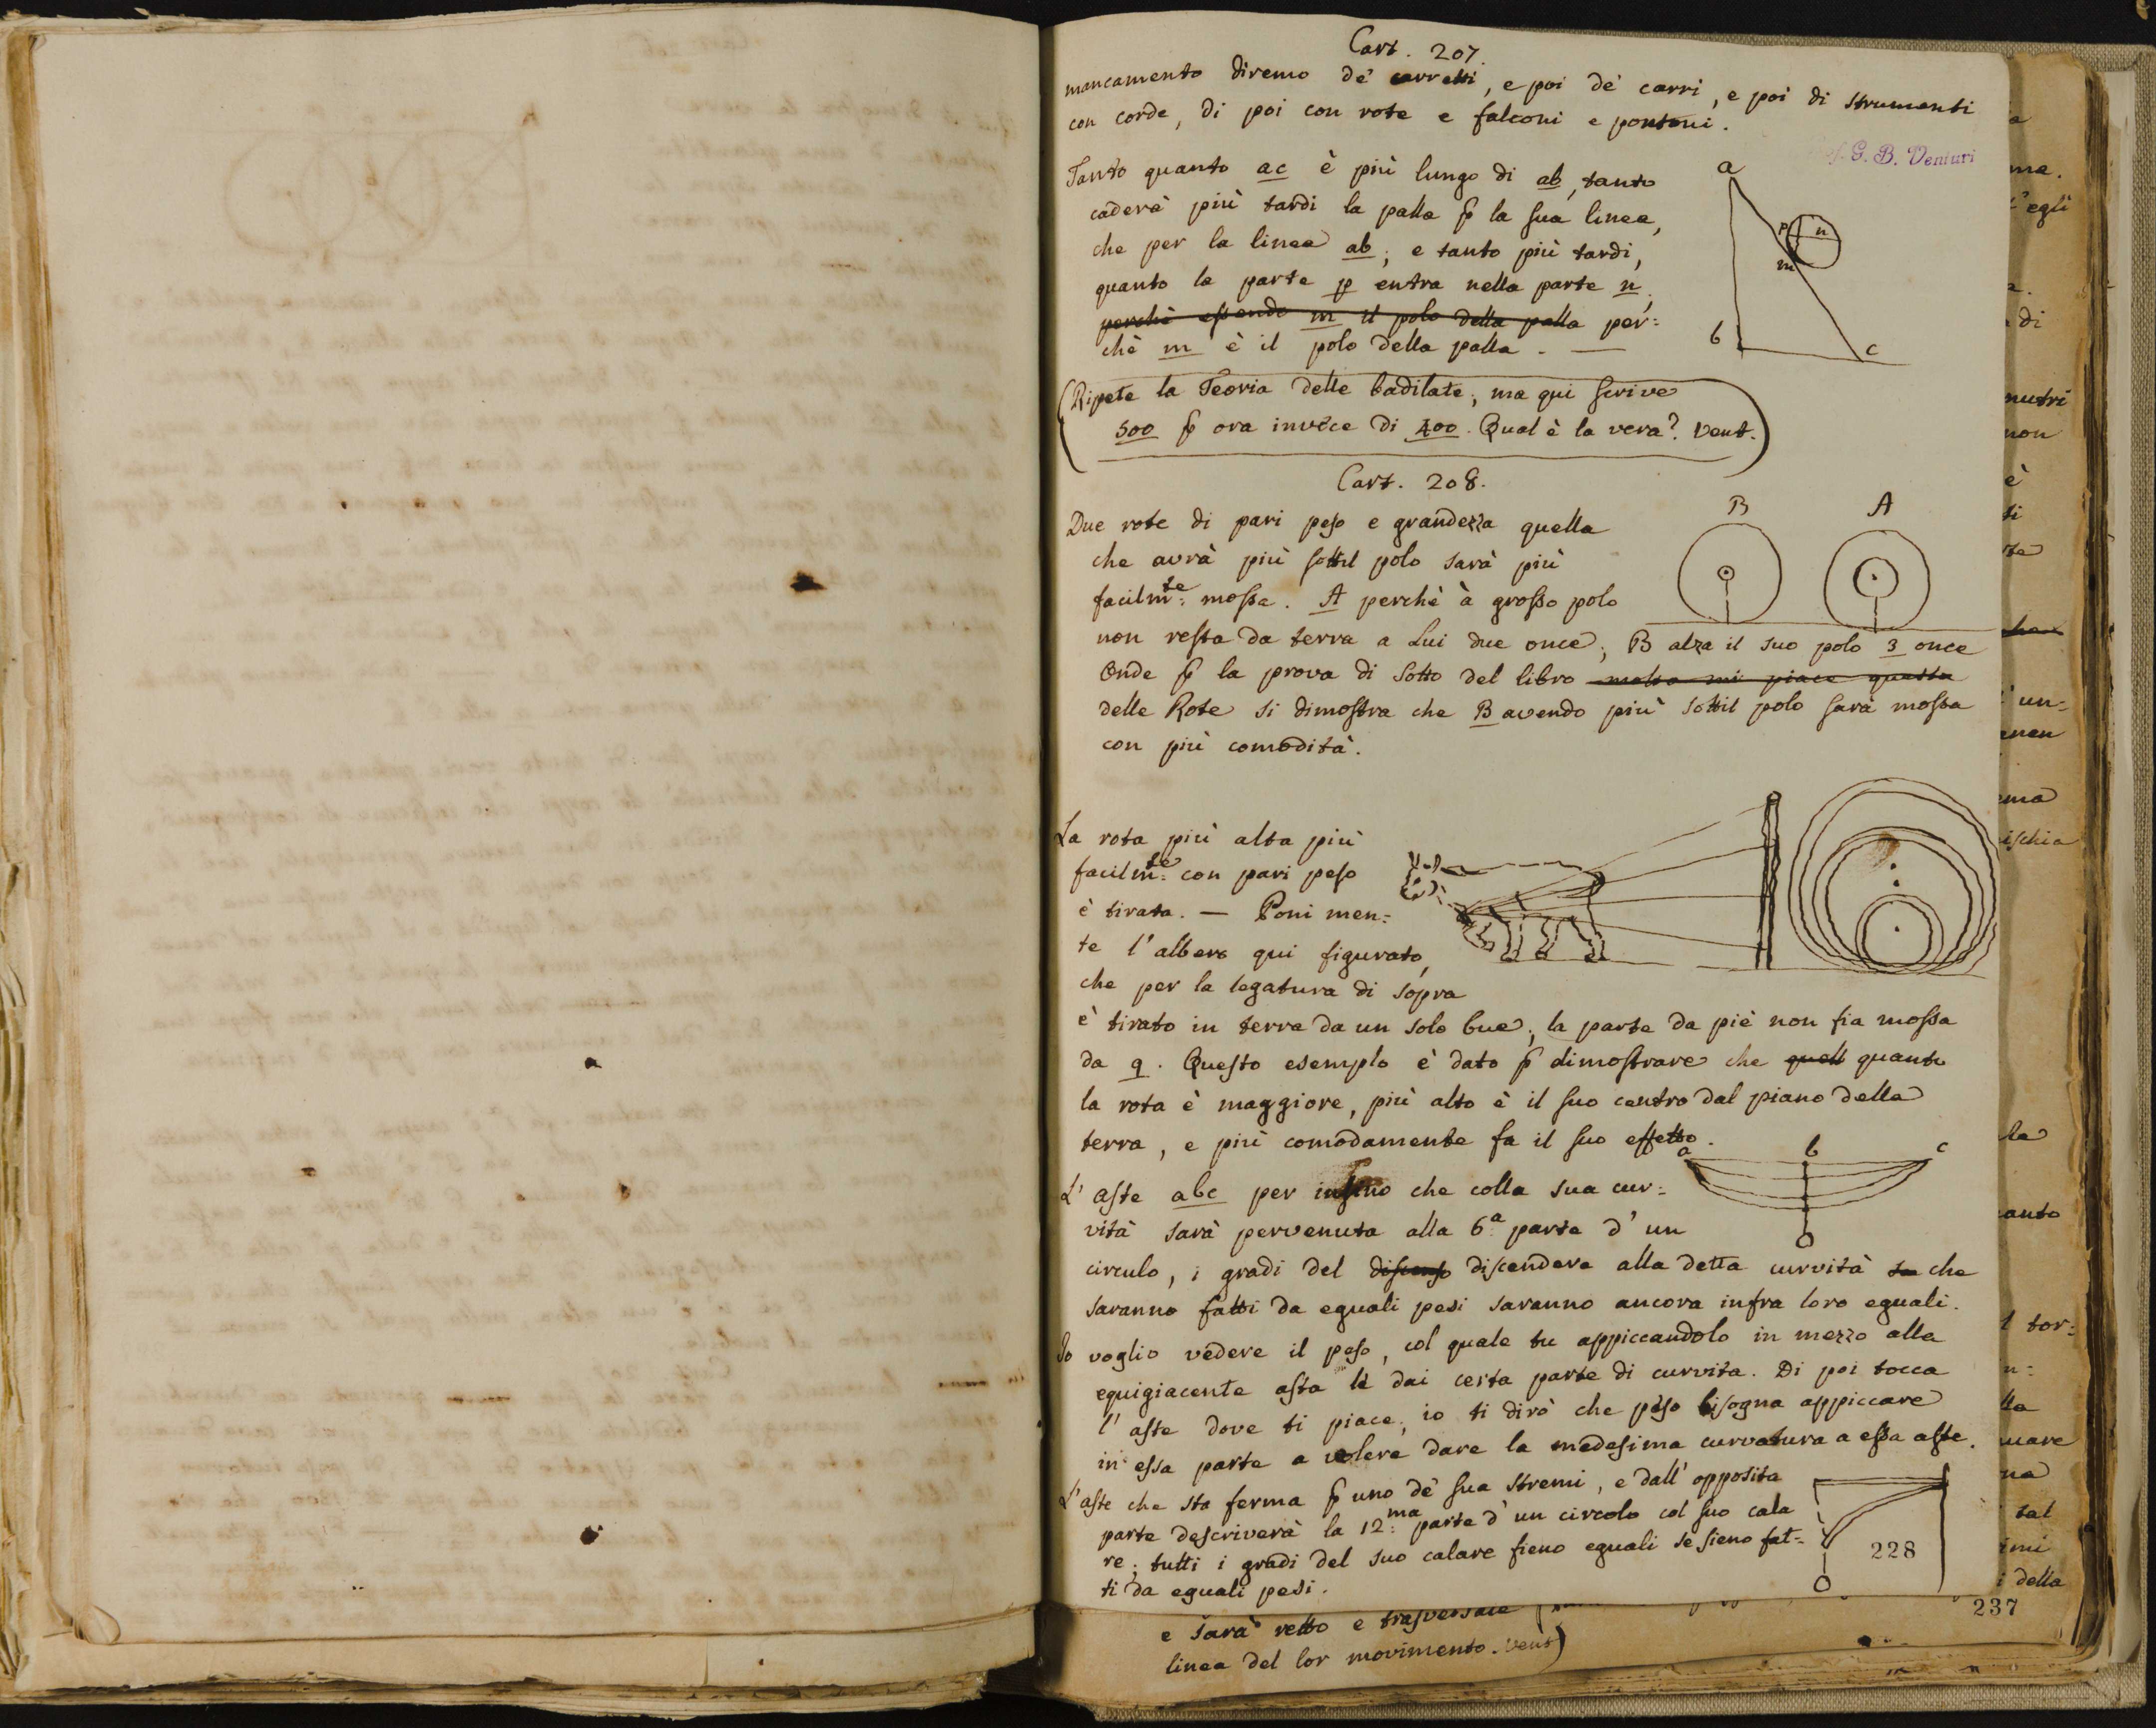 Cart. 207.
mancamento diremo de' carretti, e poi de' carri, e poi di strumenti
con corde, di poi con rote e falconi e pontoni.
G. B. Venturi
Tanto quanto ac è più lungo di ab, tanto
caderà più tardi la palla ꝑ la sua linea,
che per la linea ab; e tanto più tardi,
quanto la parte p entra nella parte n,
perchè essendo m il polo della palla per=
chè m è il polo della palla. —
a
p n
m
b
c
(Ripete la Teoria delle badilate; ma qui scrive
500 ꝑ ora invece di 400. Qual è la vera? Vent.)
Cart. 208.
B A
Due rote di pari peso e grandezza quella
che avrà più sottil polo sarà più
facilmte: mossa. A perchè à grosso polo
non resta da terra a Lui due once; B alza il suo polo 3 once
Onde ꝑ la prova di sotto del libro molto mi piace questa
delle Rote si dimostra che B avendo più sottil polo sarà mossa
con più comodità.
La rota più alta più
facilmte: con pari peso
è tirata. — Poni men=
te l'albero qui figurato,
che per la legatura di sopra
è tirato in terra da un solo bue; la parte da piè non fia mossa
da q. Questo esemplo è dato ꝑ dimostrare che quell quanto
la rota è maggiore, più alto è il suo centro dal piano della
terra, e più comodamente fa il suo effetto.
a b c
L'aste abc per insino che colla sua cur=
vità sarà pervenuta alla 6.a parte d'un
circulo, i gradi del discenso discendere alla detta curvità che
saranno fatti da eguali pesi saranno ancora infra loro eguali.
Io voglio vedere il peso, col quale tu appiccandolo in mezzo alla
equigiacente asta le dai certa parte di curvita. Di poi tocca
l'aste dove ti piace; io ti dirò che peso bisogna appiccare
in essa parte a volere dare la medesima curvatura a essa aste.
L'aste che sta ferma ꝑ uno de' sua stremi, e dall'opposita
parte descriverà la 12:ma parte d'un circolo col suo cala
re; tutti i gradi del suo calare fieno eguali se sieno fat=
ti da eguali pesi.
228
237
e sarà retto e trasversale
linea del lor movimento. Vent)